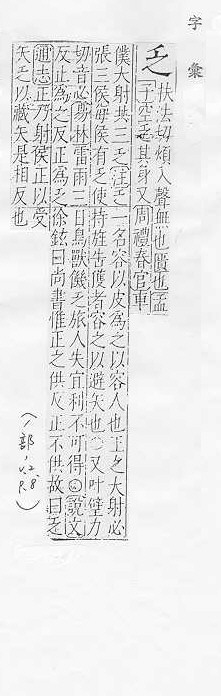 字彙
乏 扶法切煩入聲無也匱也孟
子空乏其身又周禮春官車
僕大射共三乏注乏一名容以皮為之以容人也王之大射必
張三侯每侯有乏使持旌告獲者容之以避矢也○又叶壁力
切音必易林雷雨三日鳥獸饑乏旅人失宜利不可得○說文
反正為乏反正為乏徐鉉曰尚書惟正之供反正不供故曰乏
通志正乃射侯正以受
矢乏以藏矢是相反也
(丿部,v.2.
P.8)